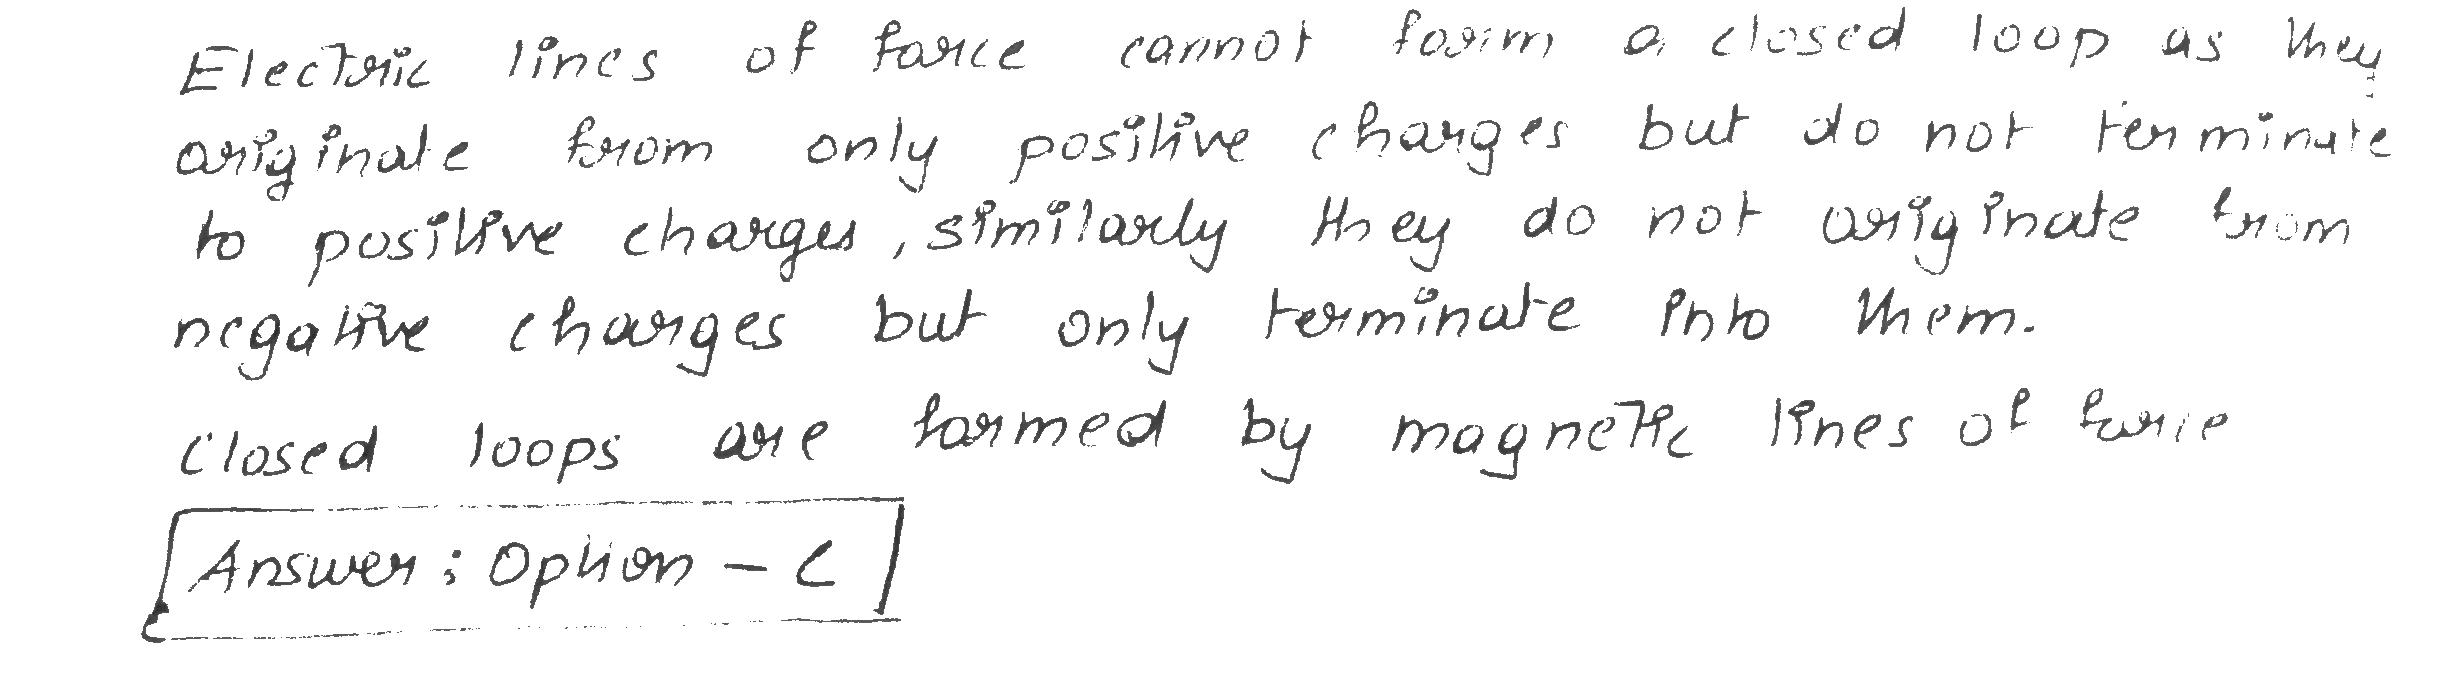 Electric lines of force cannot form a closed loop as they
originate from only positive charges but do not terminate
to positive charges, similarly they do not originate from
negative charges but only terminate into them.
Closed loops are formed by magnetic lines of force
Answer : Option - C